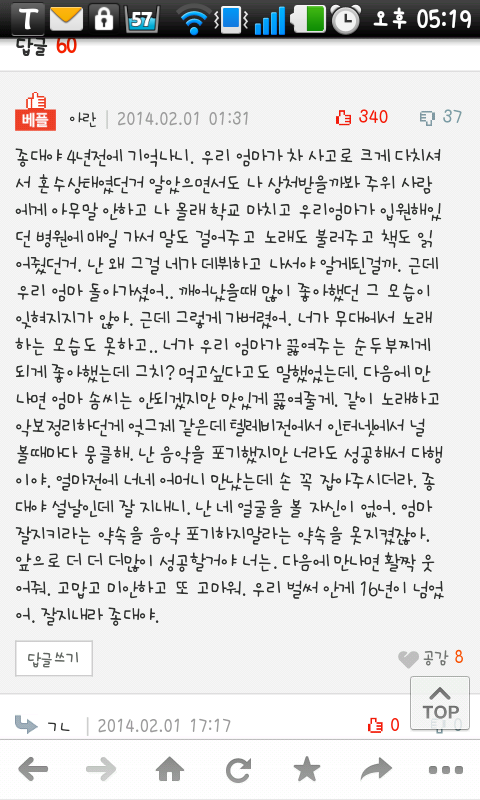 T 57 오후 05:19
답글 60
베플 아란 | 2014.02.01 01:31 340 37
종대야 4년전에 기억나니. 우리 엄마가 차 사고로 크게 다치셔
서 혼수상태였던거 알았으면서도 나 상처받을까봐 주위 사람
에게 아무말 안하고 나 몰래 학교 마치고 우리엄마가 입원해있
던 병원에 매일 가서 말도 걸어주고 노래도 불러주고 책도 읽
어줬던거. 난 왜 그걸 네가 데뷔하고 나서야 알게된걸까. 근데
우리 엄마 돌아가셨어.. 깨어났을때 많이 좋아했던 그 모습이
잊혀지지가 않아. 근데 그렇게 가버렸어. 너가 무대에서 노래
하는 모습도 못하고.. 너가 우리 엄마가 끓여주는 순두부찌게
되게 좋아했는데 그치? 먹고싶다고도 말했었는데. 다음에 만
나면 엄마 솜씨는 안되겠지만 맛있게 끓여줄게. 같이 노래하고
악보정리하던게 엊그제 같은데 텔레비전에서 인터넷에서 널
볼때마다 뭉클해. 난 음악을 포기했지만 너라도 성공해서 다행
이야. 얼마전에 너네 어머니 만났는데 손 꼭 잡아주시더라. 종
대야 설날인데 잘 지내니. 난 네 얼굴을 볼 자신이 없어. 엄마
잘지키라는 약속을 음악 포기하지말라는 약속을 못지켰잖아.
앞으로 더 더 더많이 성공할거야 너는. 다음에 만나면 활짝 웃
어줘. 고맙고 미안하고 또 고마워. 우리 벌써 안게 16년이 넘었
어. 잘지내라 종대야.
답글쓰기 공감 8
TOP
ㄱㄴ | 2014.02.01 17:17 0 0